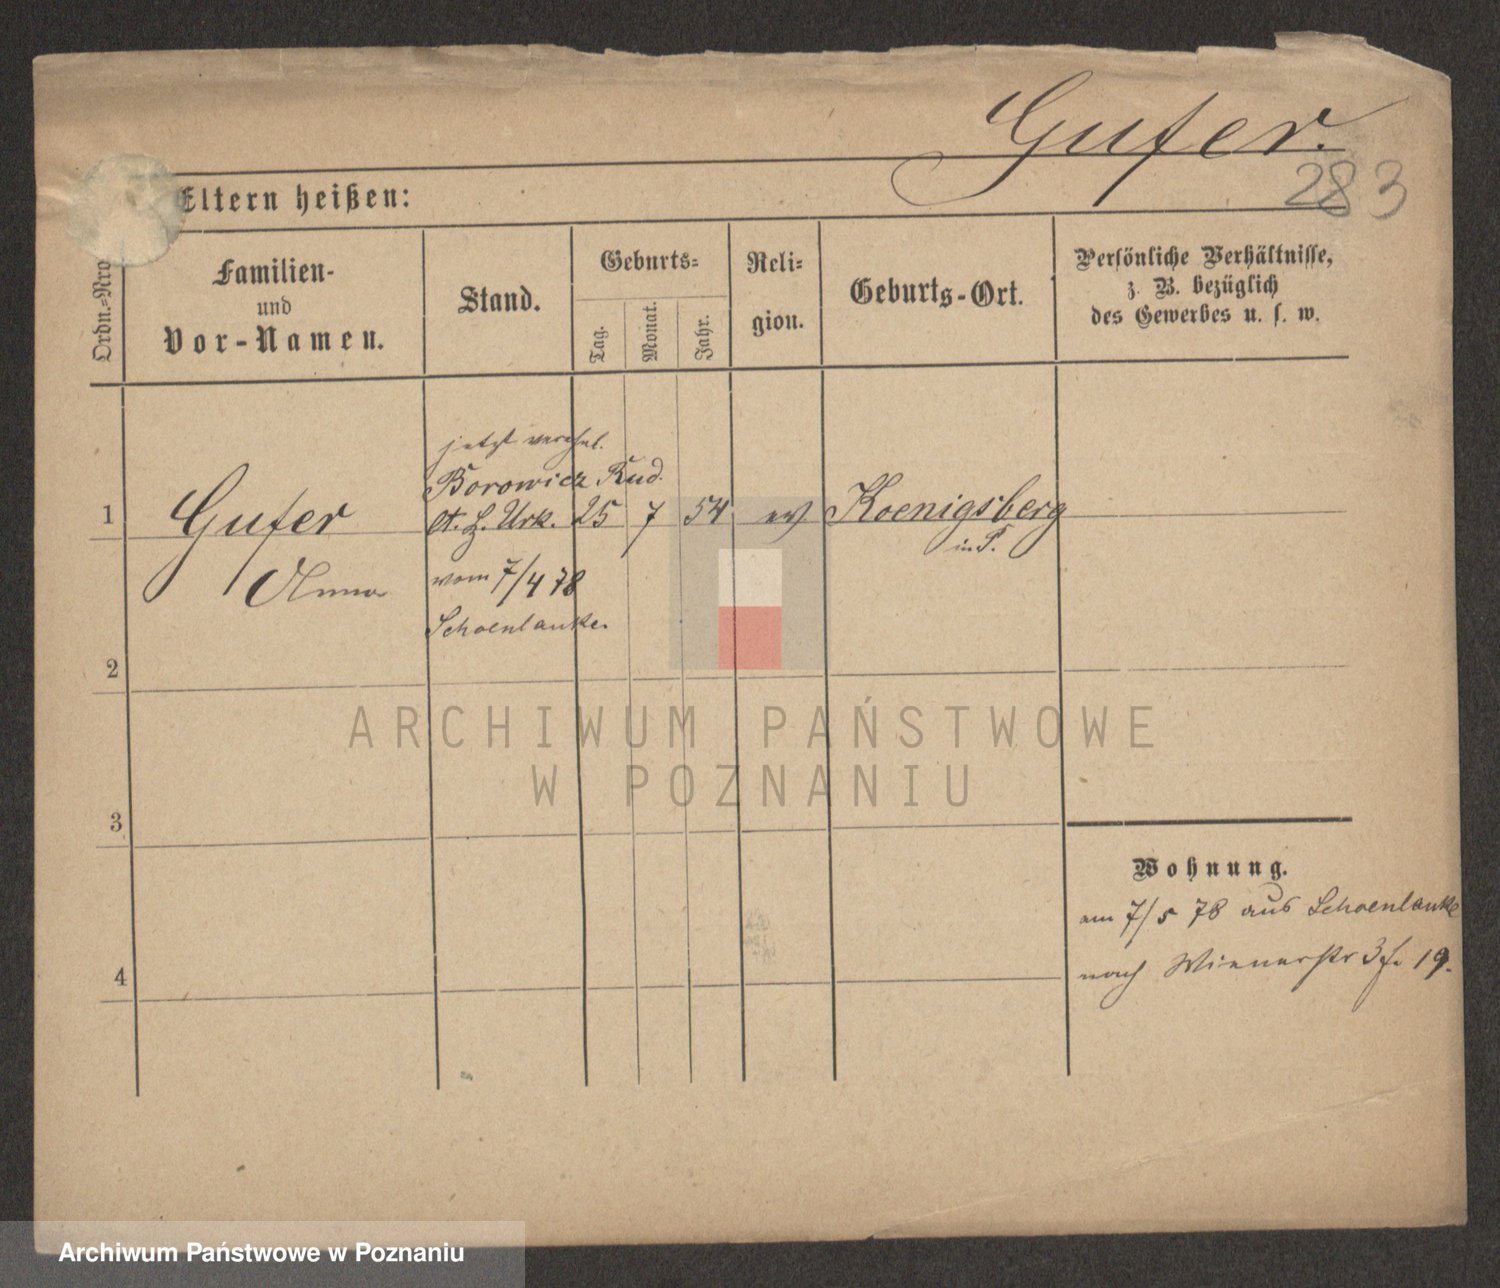 Gufer.
283
Eltern heißen:
Ordn.-Nro
Familien-
und
Vor-Namen.
Stand.
Geburts-
Tag.
Monat.
Jahr.
Reli-
gion.
Geburts-Ort.
Persönliche Verhältnisse,
z. B. bezüglich
des Gewerbes u. s. w.
jetzt verehel.
Borowicz Rud.
1 Gufer St. H. Urk. 25 7 54 ev Koenigsberg
in P.
Anna vom 7/4 78
Schoenlanke.
2
ARCHIWUM PAŃSTWOWE
W POZNANIU
3
Wohnung.
am 7/5 78 aus Schoenlanke
nach Wienerstr 3 f. 19.
4
Archiwum Państwowe w Poznaniu